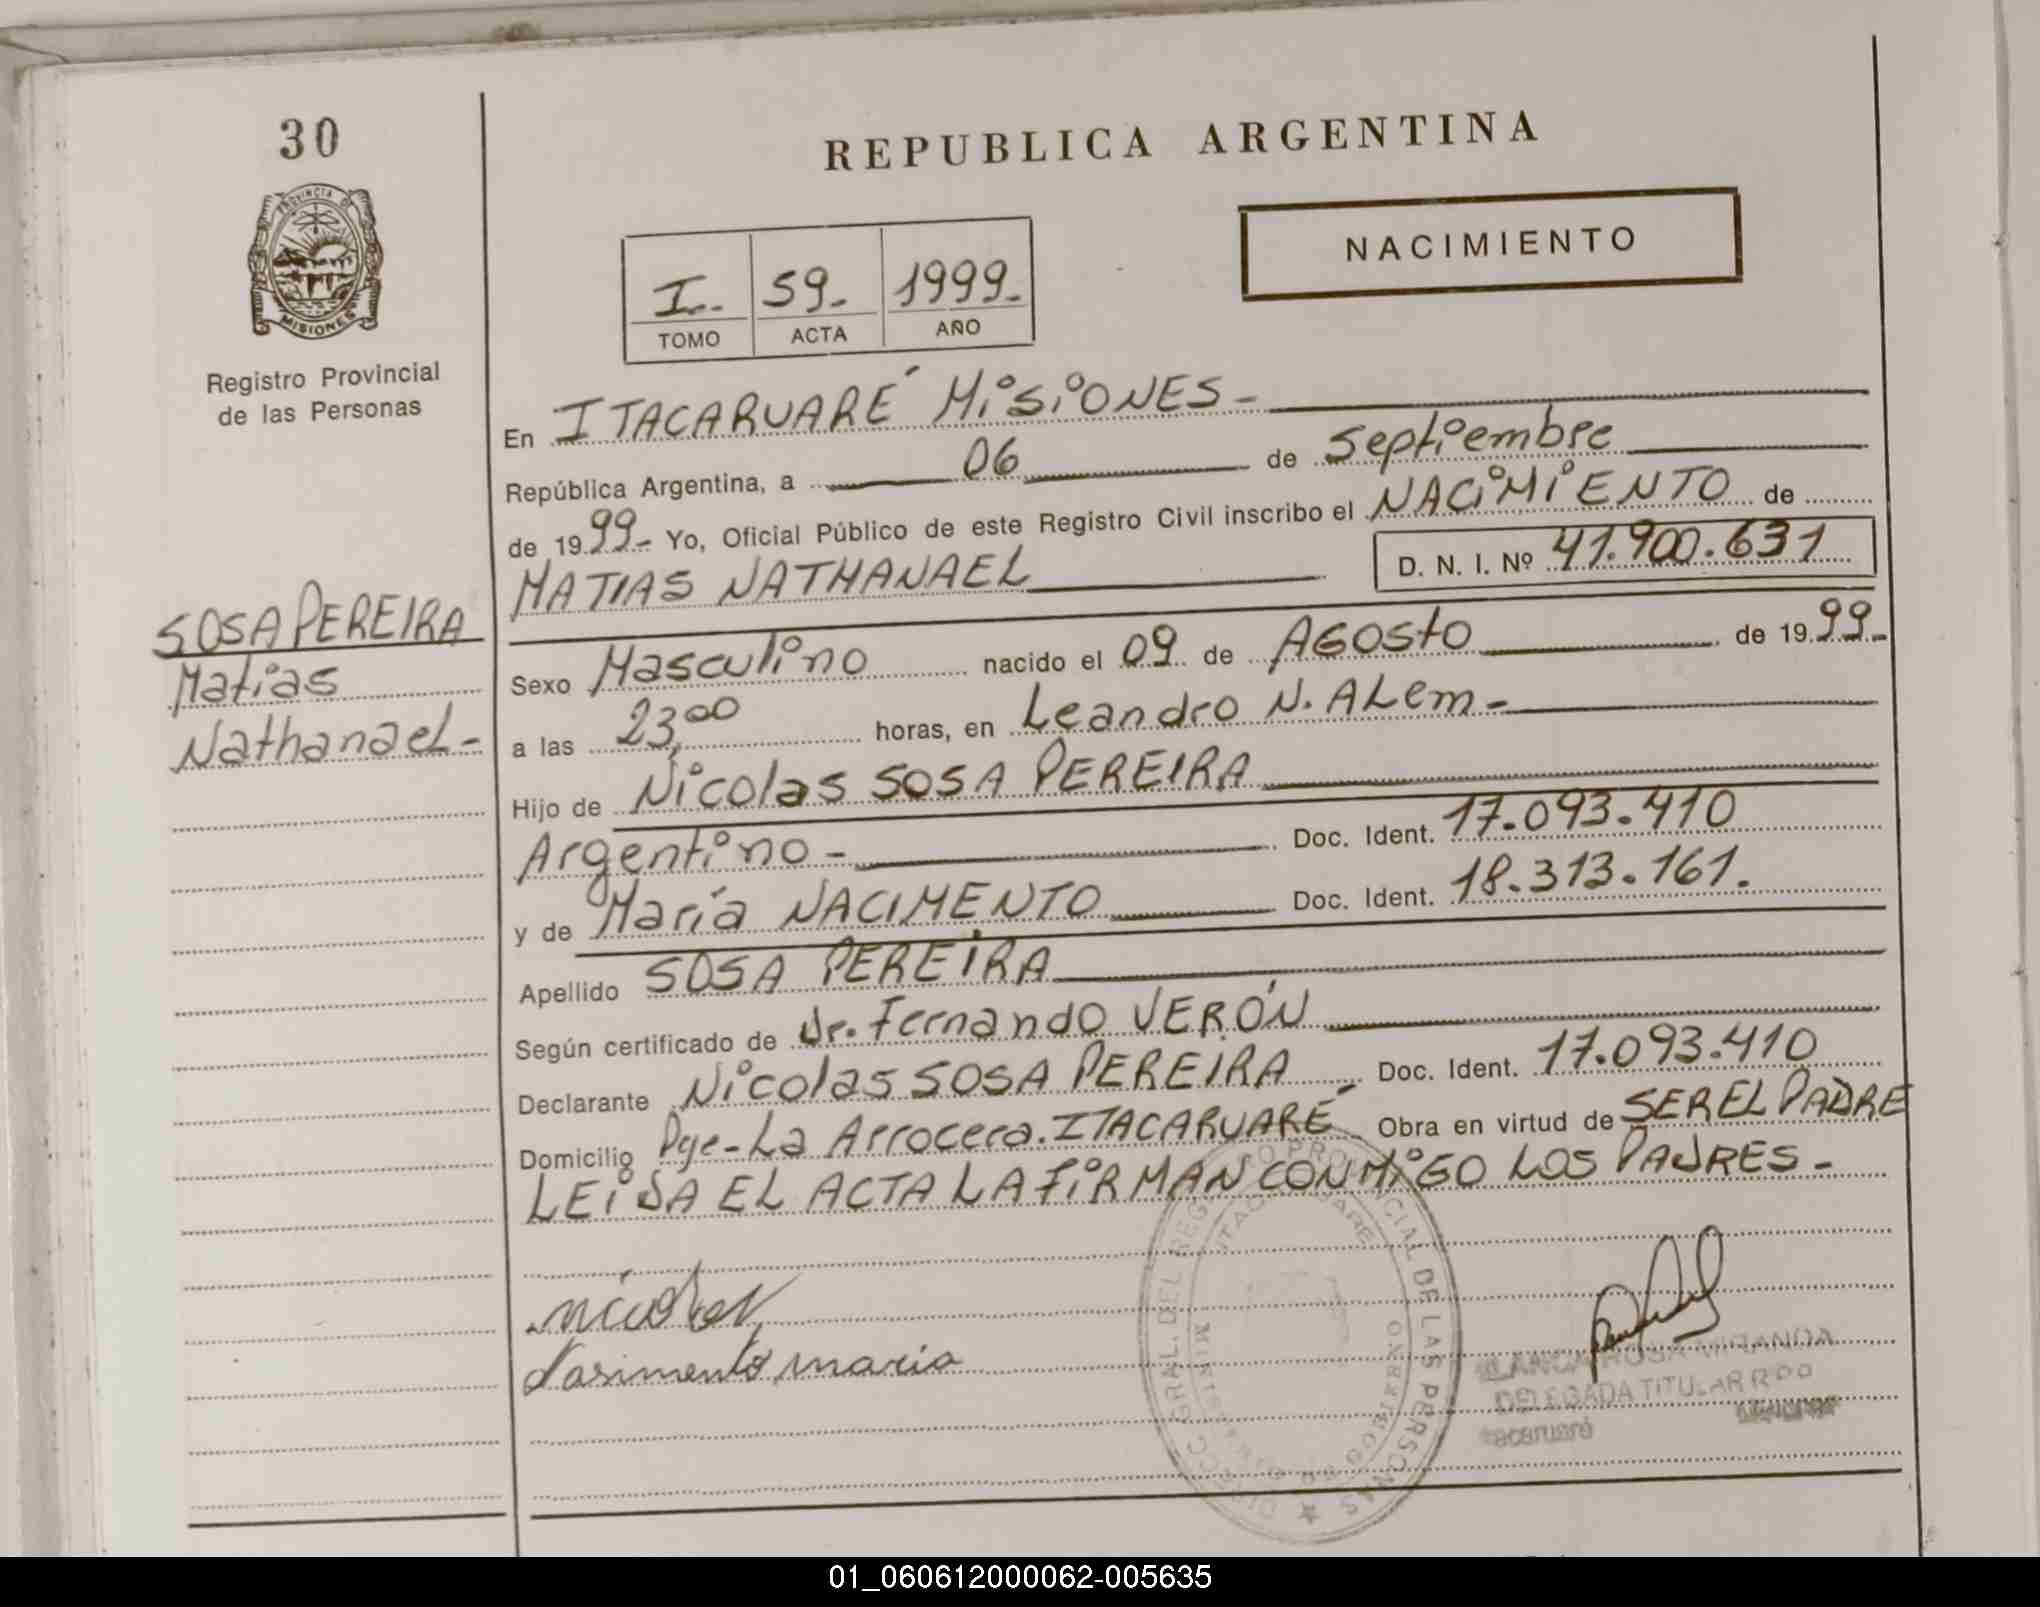 30
REPUBLICA ARGENTINA
PROVINCIA DE
MISIONES
Registro Provincial
de las Personas
NACIMIENTO
I.- 59.- 1999.-
TOMO ACTA AÑO
En ITACARUARÉ MISIONES-
República Argentina, a 06 de Septiembre
de 1999.- Yo, Oficial Público de este Registro Civil inscribo el NACIMIENTO de
MATIAS NATHANAEL D. N. I. Nº 41.900.631
SOSA PEREIRA
Matias
Nathanael-
Sexo Masculino nacido el 09 de AGOSTO de 1999-
a las 23,00 horas, en Leandro N. ALem-
Hijo de Nicolas SOSA PEREIRA
Argentino- Doc. Ident. 17.093.410
y de María NACIMENTO Doc. Ident. 18.313.161.
Apellido SOSA PEREIRA
Según certificado de Dr. Fernando VERÓN
Declarante Nicolas SOSA PEREIRA Doc. Ident. 17.093.410
Domicilio Pje-La Arrocera. ITACARUARÉ Obra en virtud de SER EL PADRE
LEIDA EL ACTA LA FIRMAN CONMIGO LOS PADRES-
Nasimento maria
DIRECC. GRAL. DEL REGISTRO PROVINCIAL DE LAS PERSONAS
ITACARUARE
MINISTERIO DE GOBIERNO
BLANCA ROSA MIRANDA
DELEGADA TITULAR R P P
Itacaruaré
01_060612000062-005635